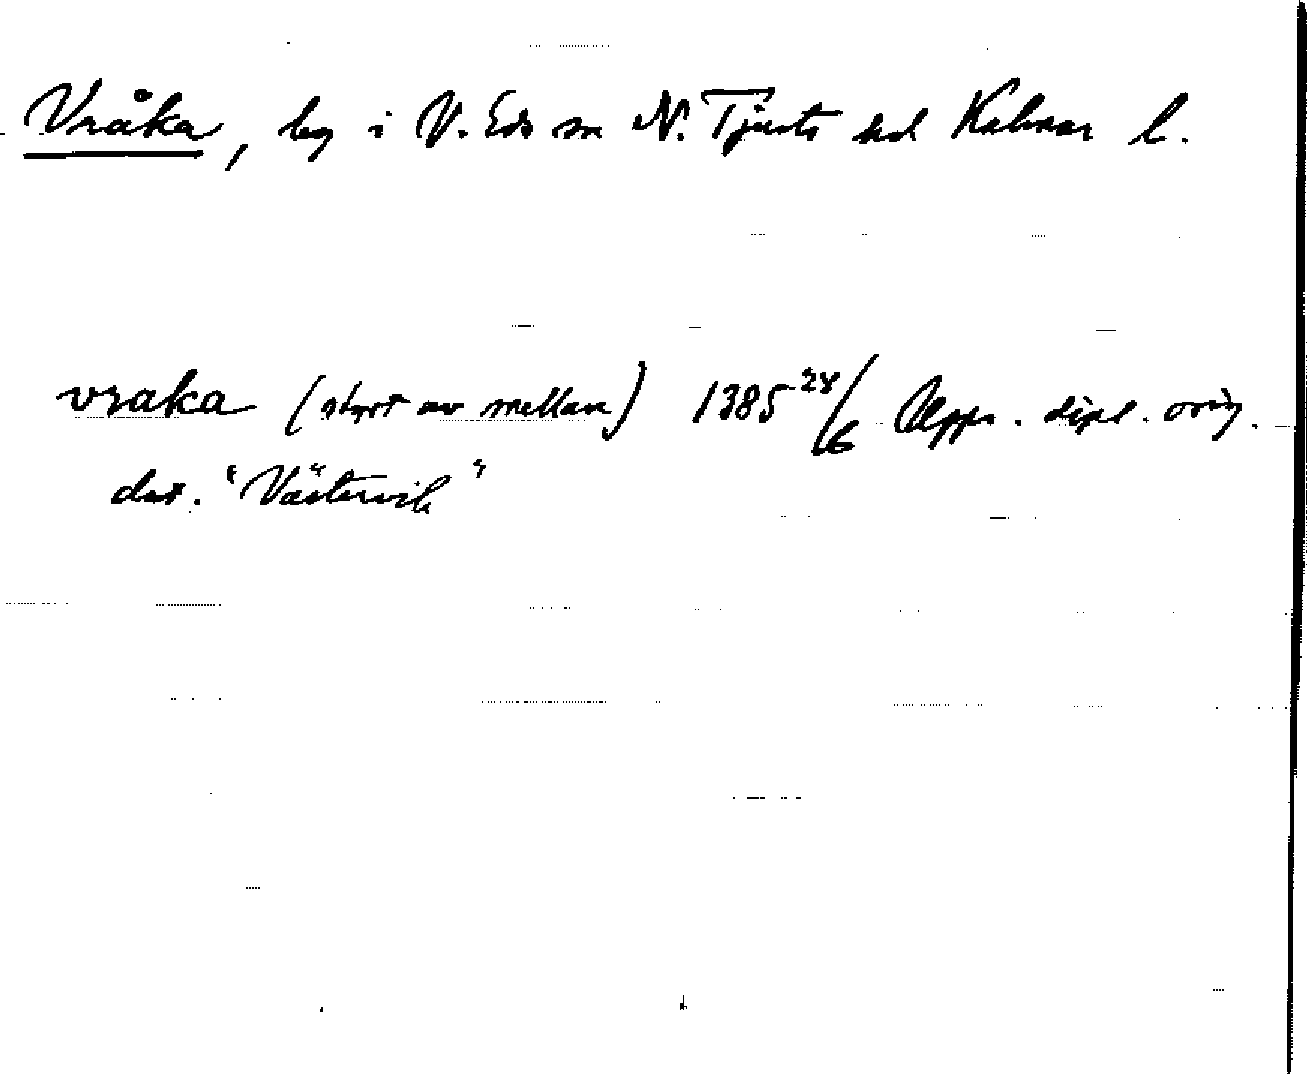 Vråka, by i V. Eds sn N. Tjusts hd Kalmar l.
vraka (styrt av mellan) 1385 24/6 Upps. dipl. orig.
dat. "Västervik"